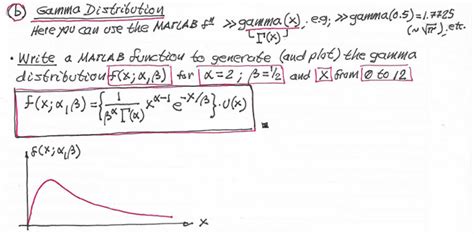 (b) Gamma Distribution
Here you can use the MATLAB fⁿ >> gamma(x), e.g; >> gamma(0.5) = 1.7725
[Γ(x)] (~√π), etc.
• Write a MATLAB function to generate (and plot) the gamma
distribution f(x; α, β) for α = 2 ; β = 1/2 and X from 0 to 12.
f(x; α, β) = { 1/(β^α Γ(α)) x^(α-1) e^(-x/β) } · U(x)
f(x; α, β)
x